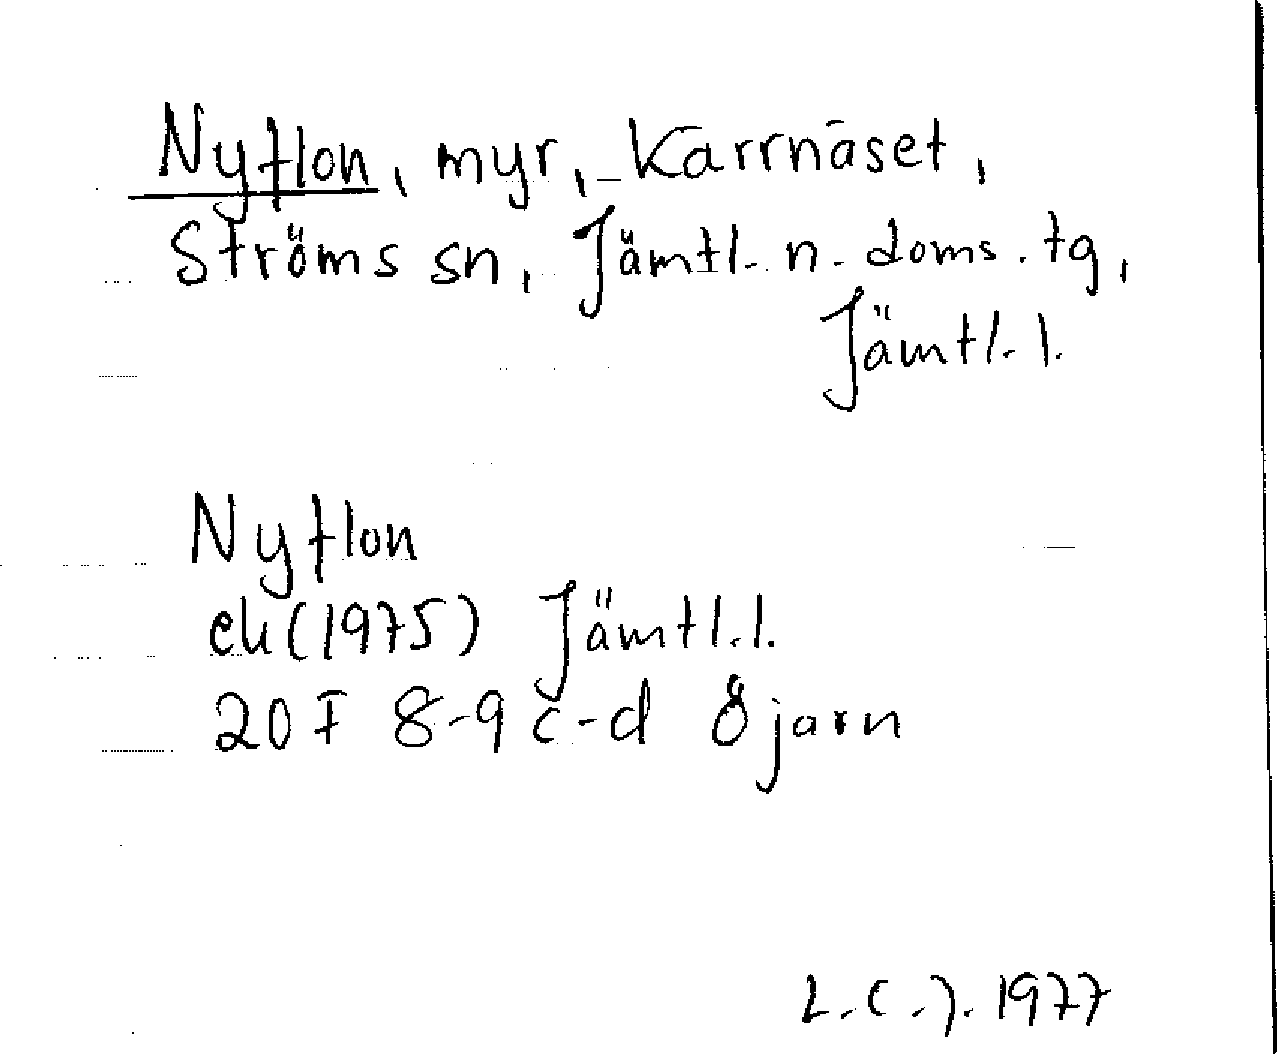 Nyflon, myr, Kärrnäset,
Ströms sn, Jämtl. n. doms. tg,
Jämtl. l.
Nyflon
ek (1975) Jämtl. l.
20 F 8-9 c-d Öjarn
L.C.J. 1977